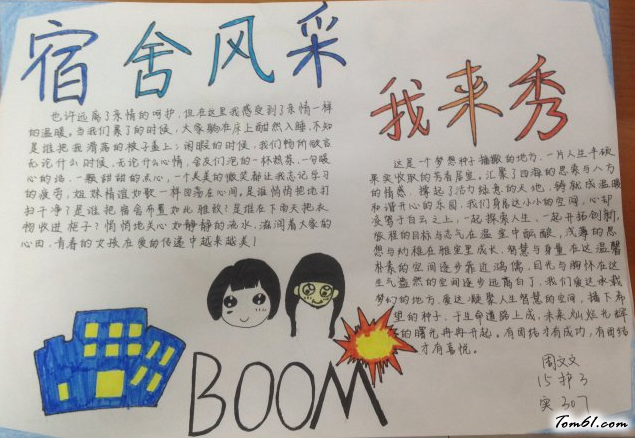 宿舍风采
也许远离了亲情的呵护，但在这里我感受到了亲情一样
的温暖。当我们累了的时候，大家躺在床上酣然入睡，不知
是谁把我滑落的被子盖上；闲暇的时候，我们畅所欲言
无论什么时候，无论什么心情，舍友们泡的一杯热茶，一句暖
心的话，一颗甜甜的点心，一个美美的微笑都让我忘记学习
的疲劳，姐妹情谊如歌一样回荡在心间，是谁悄悄把地打
扫干净了是谁把宿舍布置如此雅致？是谁在下雨天把衣
物收进柜子？悄悄地关心如静静的流水，滋润着大家的
心田，青春的女孩在爱的传递中越来越美！
我来秀
这是个梦想种子播撒的地方，一片人生手硕
果实收取的秀有居室，汇聚了四海的思索与八方
的情感，撑起了活力绿意的天地，铸就成温暖
和谐开心的乐园，我们身居这小小的空间，心却
交驾于白云之上，一起探索人生，一起开拓创新，
旅程的目标与志气在温室中酝酿，浅薄的思
想与幼稚在雅室里成长，智慧与身量在这温馨
朴素的空间逐步靠近鸿儒，目光与胸怀在这
生气盎然的空间逐步远离白丁，我们爱这承载
梦幻的地方，爱这凝聚人生智慧的空间，播下希
望的种子，于生命道路上成，未来灿烂光辉
的曙光冉冉升起。有团结才有成功，有团结
才有喜悦。
周文文
15护3
实307
BOOM
Tom61.com